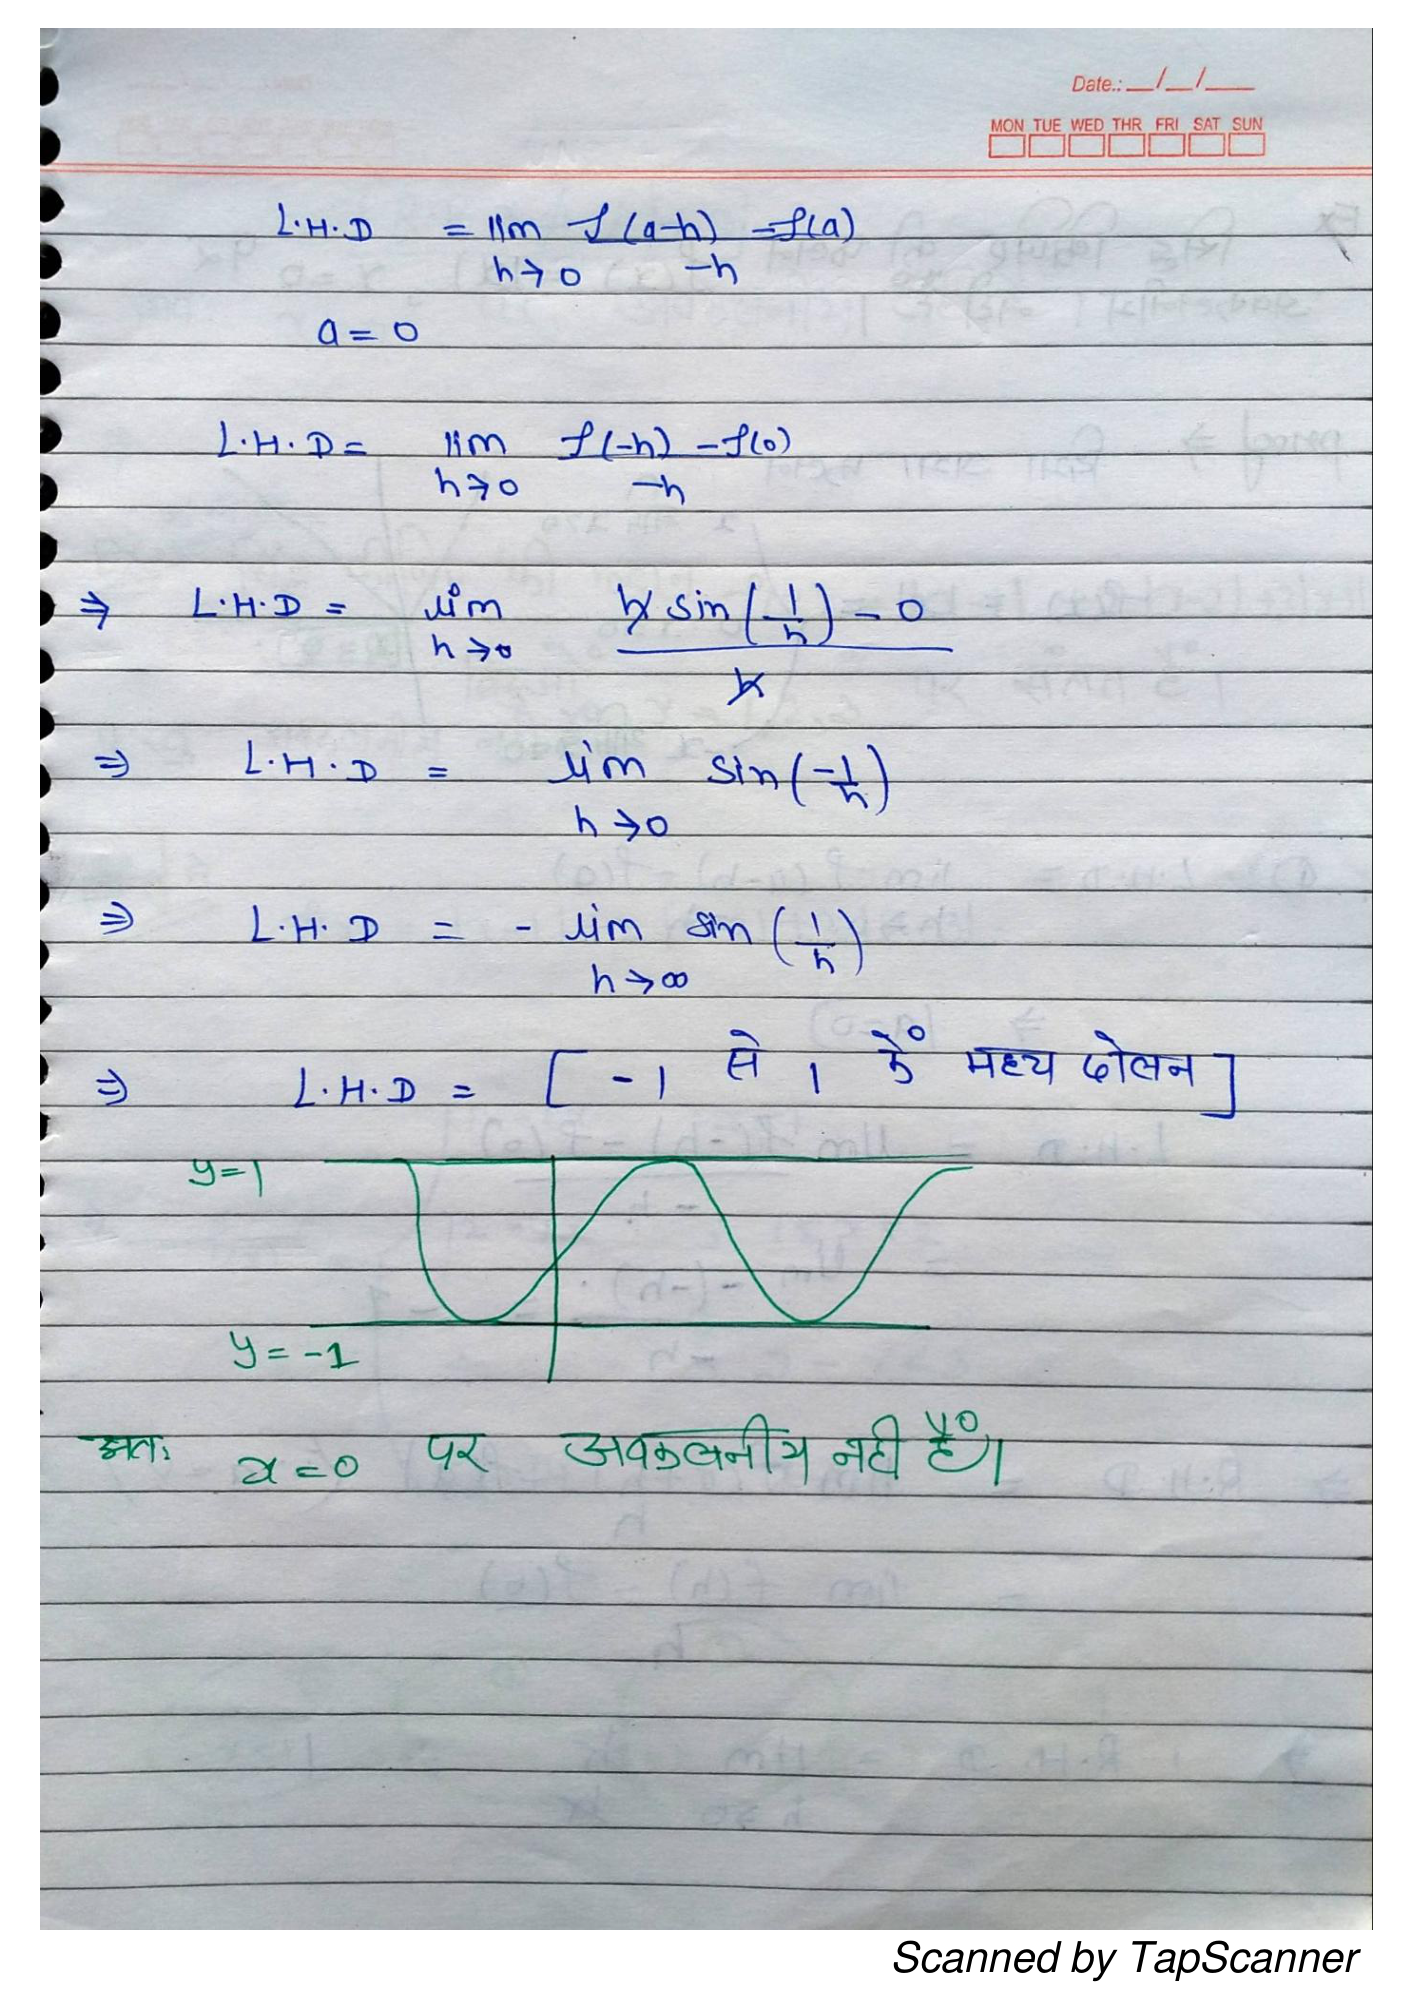 Date.: __/__/____
MON TUE WED THR FRI SAT SUN
L.H.D = lim f(a-h) -f(a)
h→0 -h
a = 0
L.H.D = lim f(-h) - f(0)
h→0 -h
⇒ L.H.D = lim h sin(1/h) - 0
h→0 h
⇒ L.H.D = lim sin(-1/h)
h→0
⇒ L.H.D = - lim sin(1/h)
h→∞
⇒ L.H.D = [ -1 से 1 के मध्य दोलन ]
y=1
y = -1
अतः x=0 पर अवकलनीय नही है।
Scanned by TapScanner